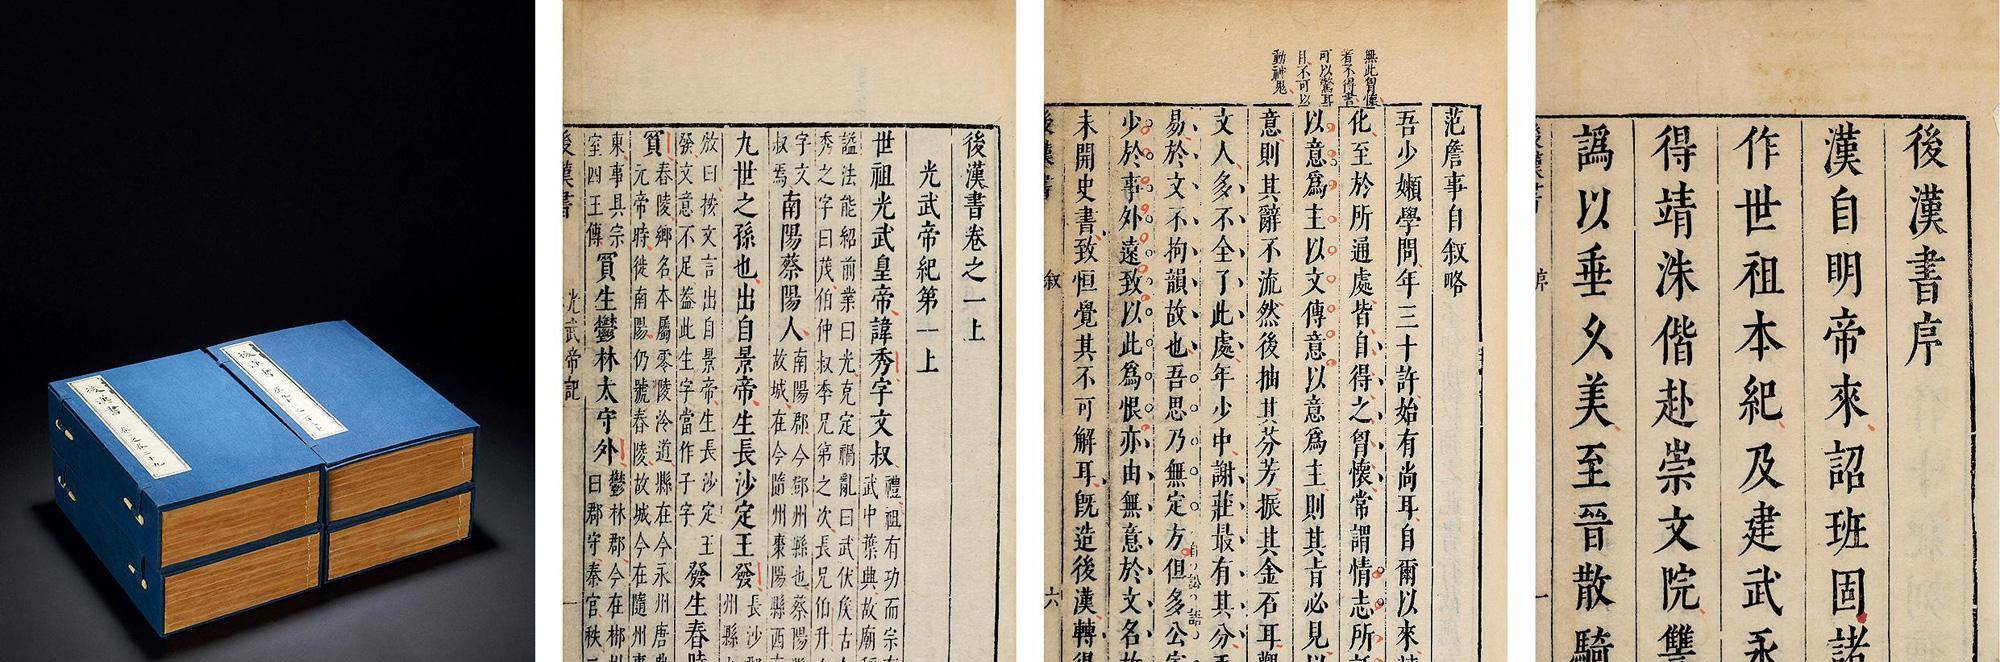 後漢書
後漢書
後漢書卷之一上
光武帝紀第一上
世祖光武皇帝諱秀字文叔
禮祖有功而宗有
武中葉興故廟稱
謚法能紹前業曰光克定禍亂曰武伏侯古人
秀之字曰茂伯仲叔季兄弟之次長兄伯升
字文
叔焉
南陽蔡陽人
南陽郡今鄧州縣也蔡陽縣
故城在今隨州棗陽縣西
九世之孫也出自景帝生長沙定王發
長沙郡
州縣
放曰按文言出自景帝生長沙定王
發文意不足葢此生字當作子字
發生舂陵
買
舂陵鄉名本屬零陵泠道縣在今永州唐興
元帝時徙南陽仍號舂陵故城今在隨州
東事具宗
室四王傳
買生鬱林太守外
鬱林郡今在郴州
曰郡守秦官秩二
後漢書
光武帝記
一
無此胷懷
者不得書
可以驚耳
目不可以
動神鬼
范詹事自叙略
吾少嬾學問年三十許始有尚耳自爾以來
化至於所通處皆自得之胷懷常謂情志所
以意爲主以文傳意以意爲主則其旨必見以
意則其辭不流然後抽其芬芳振其金石耳觀
文人多不全了此處年少中謝莊最有其分手
易於文不拘韻故也吾思乃無定方但多公家
少於事外遠致以此爲恨亦由無意於文名故
未開史書致恒覺其不可解耳既造後漢轉得
後漢書
叙
六
後漢書序
漢自明帝來詔班固諸
作世祖本紀及建武永
得靖洙偕赴崇文院讐
譌以垂久美至晉散騎
後漢書
序
一